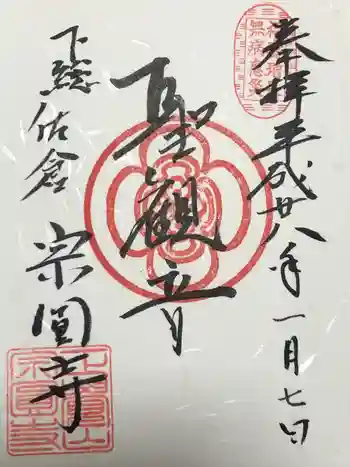 奉拝 平成廿八年一月七日
聖観音
下総佐倉 宗圓寺